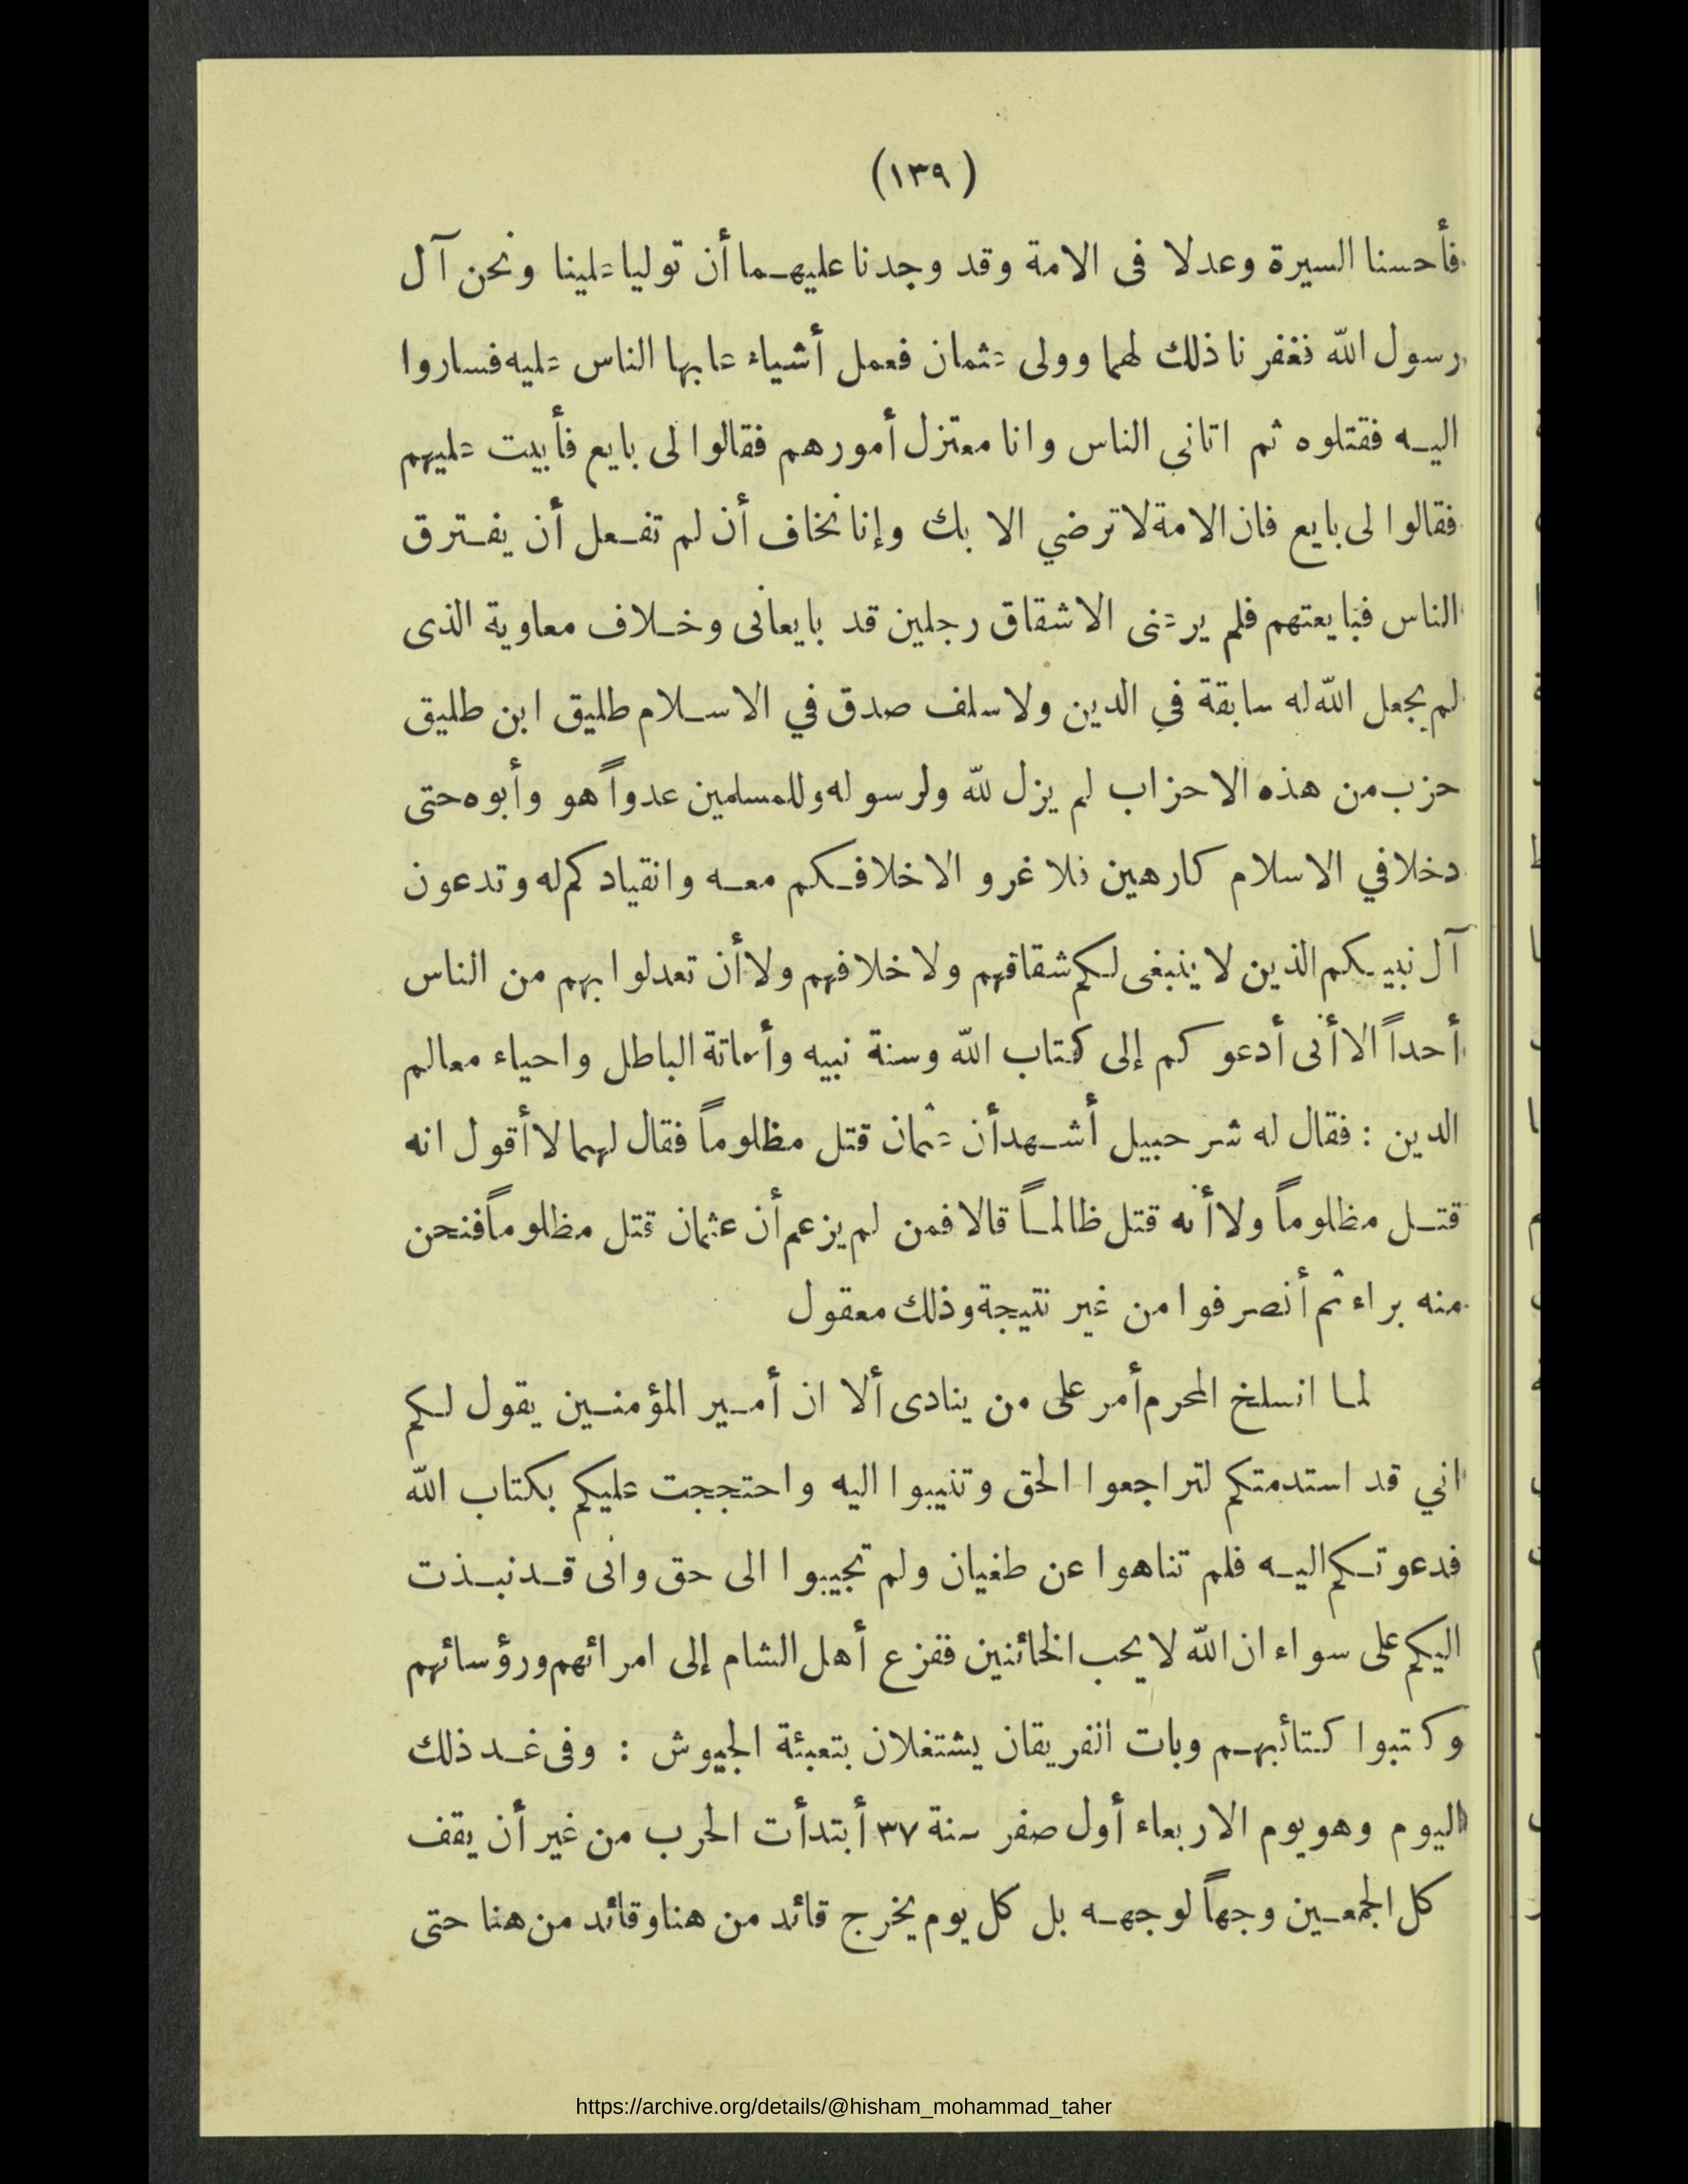 (١٣٩)
فأحسنا السيرة وعدلا فى الامة وقد وجدنا عليهما أن توليا علينا ونحن آل
رسول الله فغفرنا ذلك لهما وولى عثمان فعمل أشياء عابها الناس عليه فساروا
اليه فقتلوه ثم اتاني الناس وانا معتزل أمورهم فقالوا لى بايع فأبيت عليهم
فقالوا لى بايع فان الامة لا ترضي الا بك وإنا نخاف أن لم تفعل أن يفترق
الناس فبايعتهم فلم يرعنى الا شقاق رجلين قد بايعانى وخلاف معاوية الذى
لم يجعل الله له سابقة في الدين ولا سلف صدق في الاسلام طليق ابن طليق
حزب من هذه الاحزاب لم يزل لله ولرسوله وللمسلمين عدواً هو وأبوه حتى
دخلا في الاسلام كارهين فلا غرو الا خلافكم معه وانقيادكم له وتدعون
آل نبيكم الذين لا ينبغى لكم شقاقهم ولا خلافهم ولا أن تعدلوا بهم من الناس
أحداً الا أنى أدعوكم إلى كتاب الله وسنة نبيه وأماتة الباطل واحياء معالم
الدين : فقال له شرحبيل أشهد أن عثمان قتل مظلوماً فقال لهما لا أقول انه
قتل مظلوماً ولا أنه قتل ظالماً قالا فمن لم يزعم أن عثمان قتل مظلوماً فنحن
منه براء ثم أنصرفوا من غير نتيجة وذلك معقول
لما انسلخ المحرم أمر على من ينادى ألا ان أمير المؤمنين يقول لكم
اني قد استدمتكم لتراجعوا الحق وتنيبوا اليه واحتججت عليكم بكتاب الله
فدعوتكم اليه فلم تناهوا عن طغيان ولم تجيبوا الى حق وانى قد نبذت
اليكم على سواء ان الله لا يحب الخائنين ففزع أهل الشام إلى امرائهم ورؤسائهم
وكتبوا كتائبهم وبات الفريقان يشتغلان بتعبئة الجيوش : وفى غد ذلك
اليوم وهو يوم الاربعاء أول صفر سنة ٣٧ أبتدأت الحرب من غير أن يقف
كل الجمعين وجهاً لوجه بل كل يوم يخرج قائد من هنا وقائد من هنا حتى
https://archive.org/details/@hisham_mohammad_taher